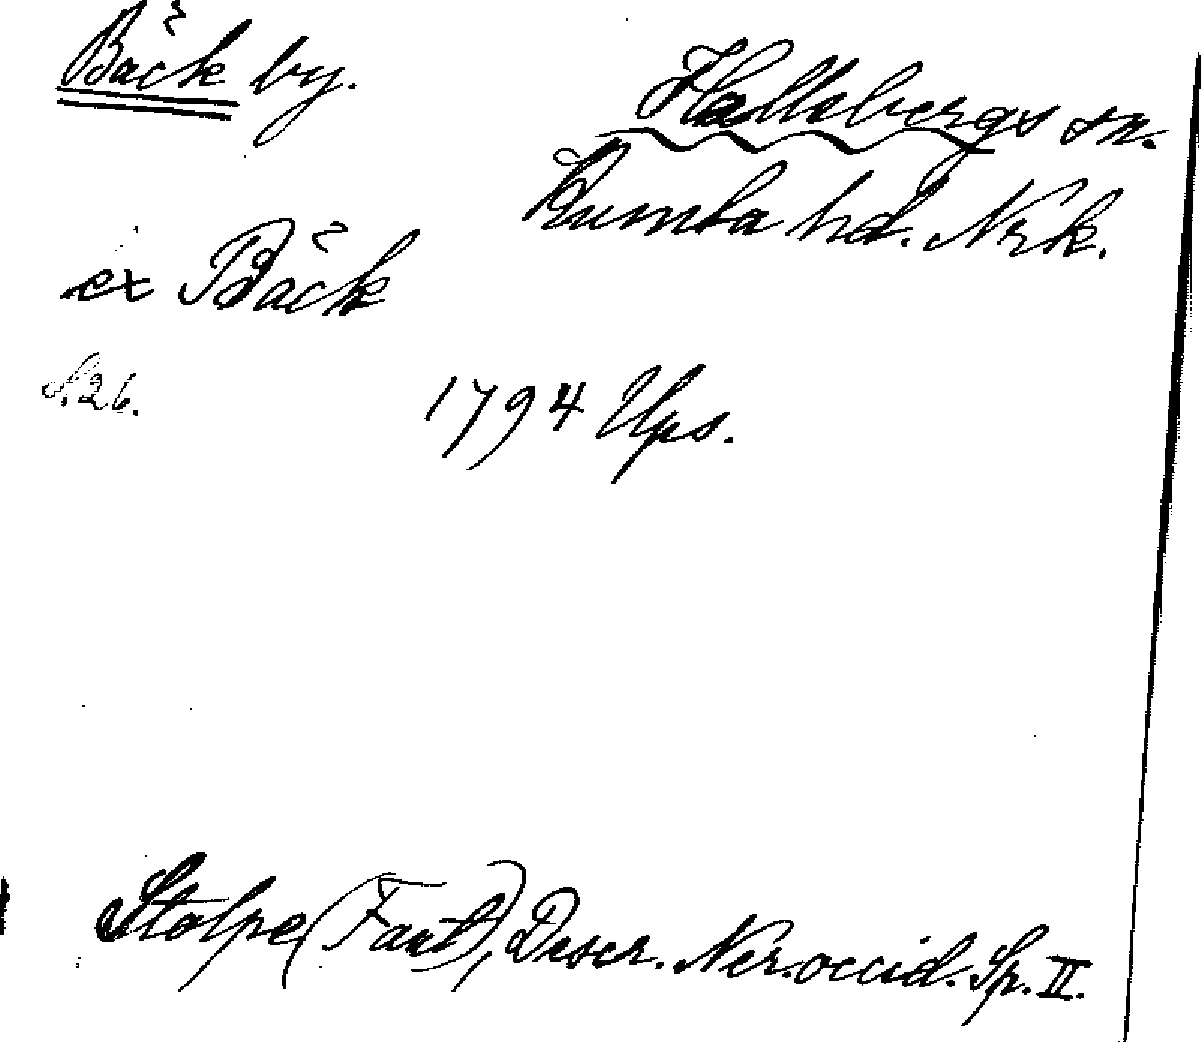 Bäck by.
Hallsbergs sn.
Kumla hd. Nrk.
ex Bäck
S. 26.
1794 Ups.
Stolpe (Fant), Descr. Ner. occid. Sp. II.